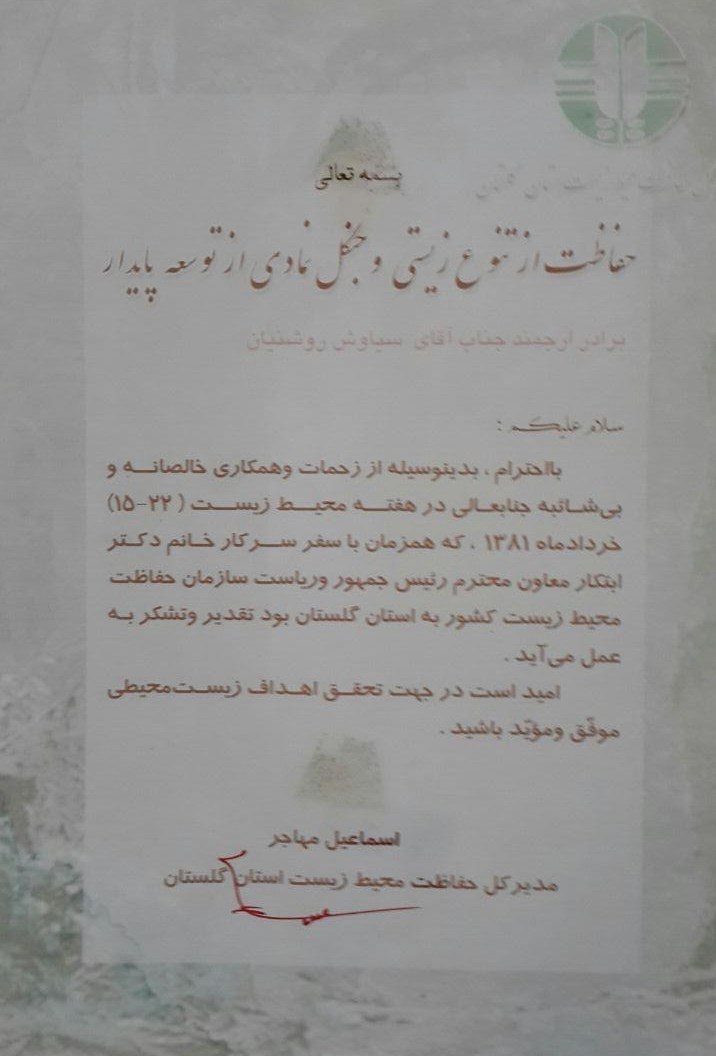 بسمه تعالی
حفاظت از تنوع زیستی و جنگل نمادی از توسعه پایدار
برادر ارجمند جناب آقای سیاوش روشنیان
سلام علیکم :
بااحترام ، بدینوسیله از زحمات وهمکاری خالصانه و
بی‌شائبه جنابعالی در هفته محیط زیست ( ۲۲-۱۵)
خردادماه ۱۳۸۱ ، که همزمان با سفر سرکار خانم دکتر
ابتکار معاون محترم رئیس جمهور وریاست سازمان حفاظت
محیط زیست کشور به استان گلستان بود تقدیر وتشکر به
عمل می‌آید .
امید است در جهت تحقق اهداف زیست‌محیطی
موفّق ومؤیّد باشید .
اسماعیل مهاجر
مدیرکل حفاظت محیط زیست استان گلستان